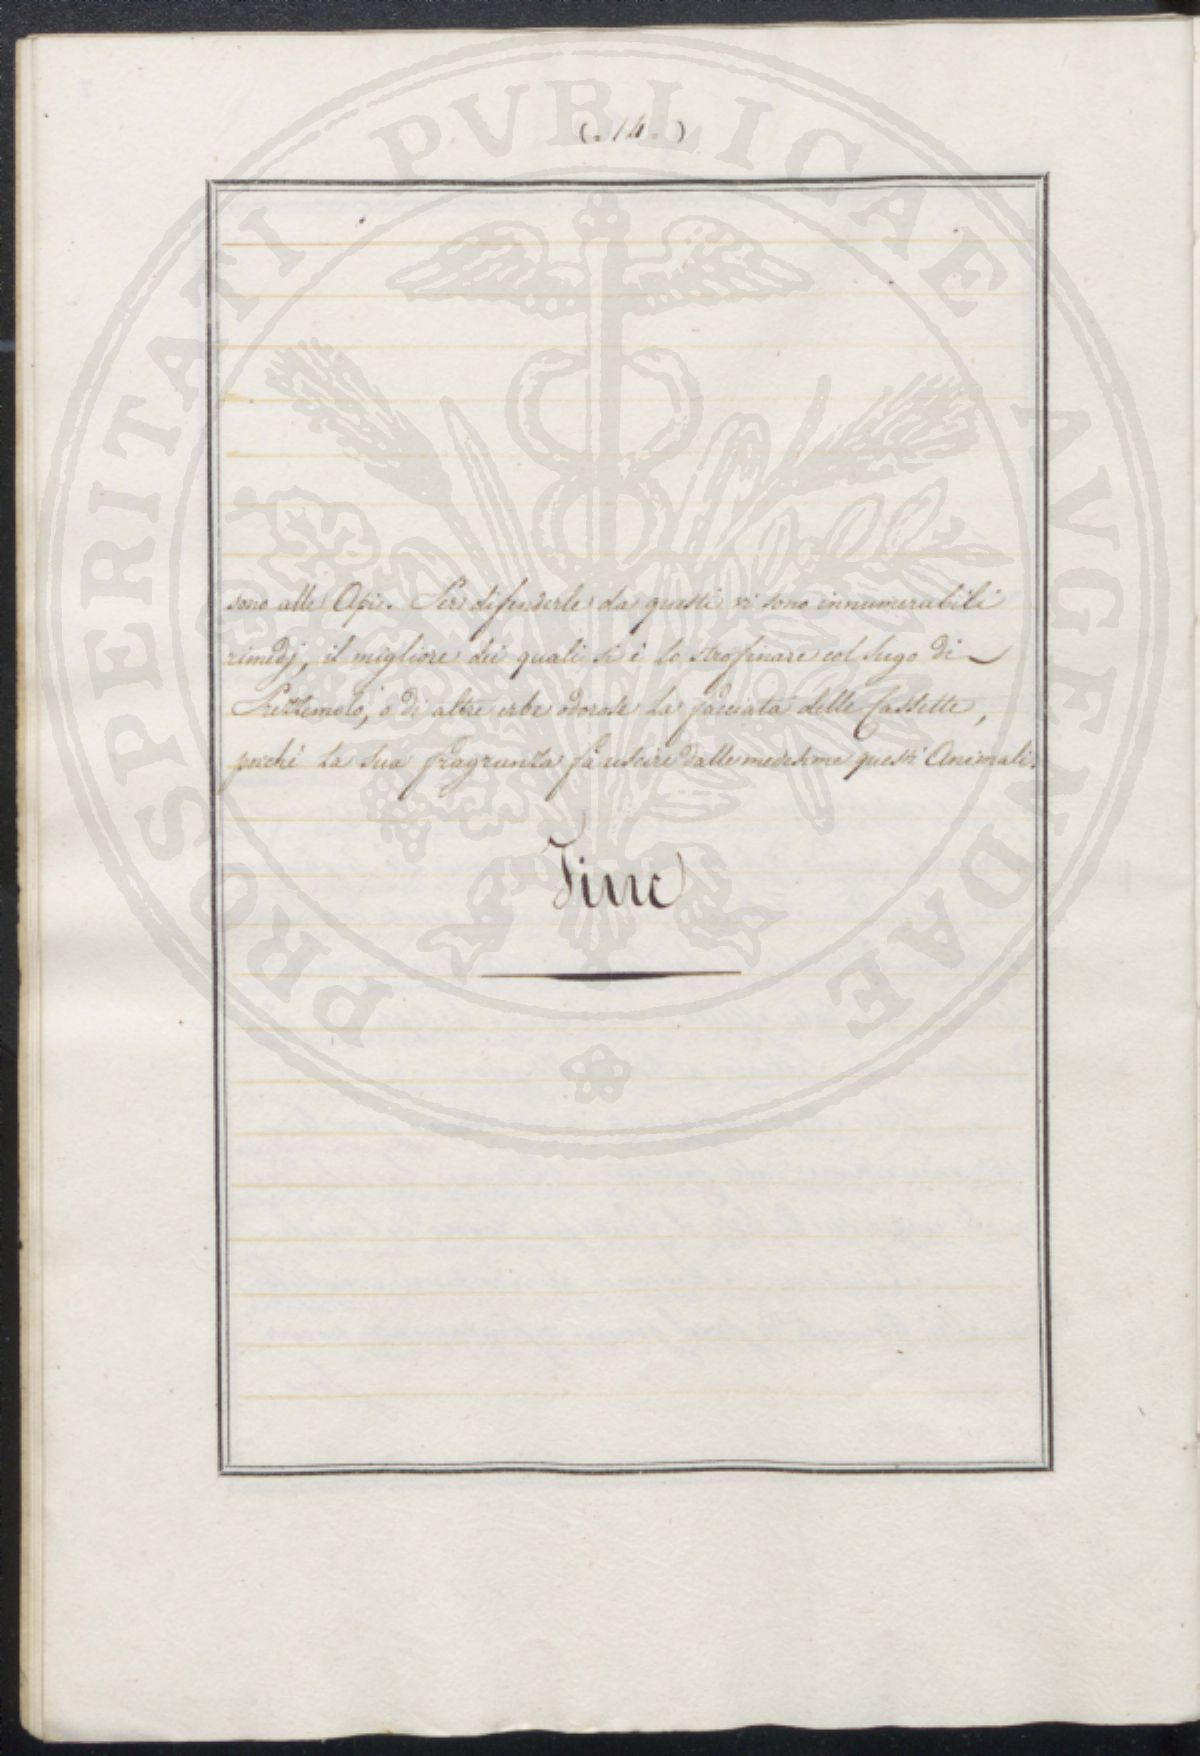 (. 14. )
sono alle Api. Per difenderle da questi vi sono innumerabili
rimedj, il migliore dei quali si è lo strofinare col sugo di
Prezzemolo, o di altre erbe odorose la facciata delle Cassette,
poichè la sua fragranza fa uscire dalle medesime questi Animali.
Fine
PROSPERITATI PVBLICAE AVGENDAE